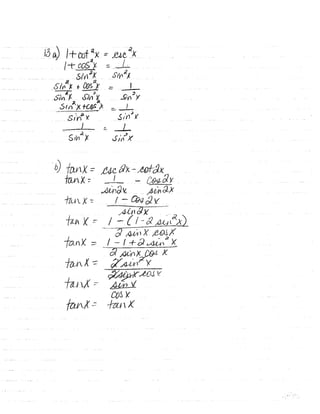 13 a) 1+cot²x = csc²x
1+ cos²x / sin²x = 1 / sin²x
sin²x / sin²x + cos²x / sin²x = 1 / sin²x
sin²x + cos²x / sin²x = 1 / sin²x
1 / sin²x = 1 / sin²x
b) tanx = csc2x - cot2x
tanx = 1 / sin2x - cos2x / sin2x
tanx = 1 - cos2x / sin2x
tanx = 1 - (1 - 2sin²x) / 2 sinx cosx
tanx = 1 - 1 + 2sin²x / 2 sinx cosx
tanx = 2sin²x / 2sinx cosx
tanx = sinx / cosx
tanx = tanx